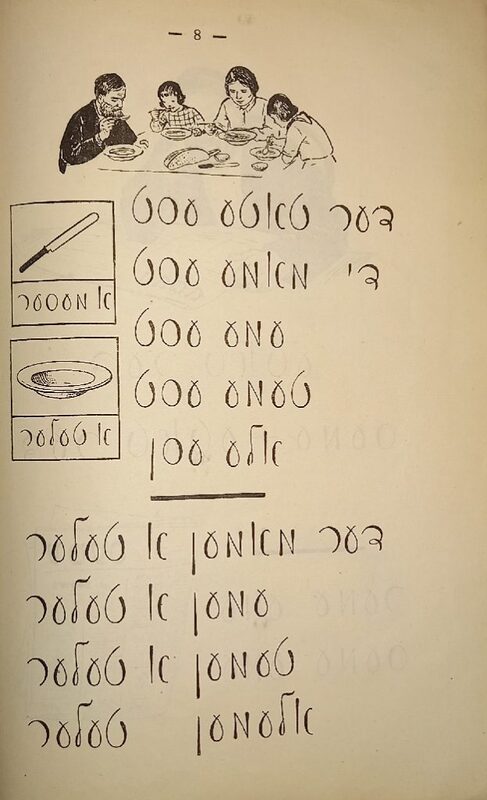 — 8 —
דער טאטע עסט
די מאמע עסט
עמע עסט
טעמע עסט
אלע עסן
א מעסער
א טעלער
דער מאמען א טעלער
עמען א טעלער
טעמען א טעלער
אלעמען טעלער